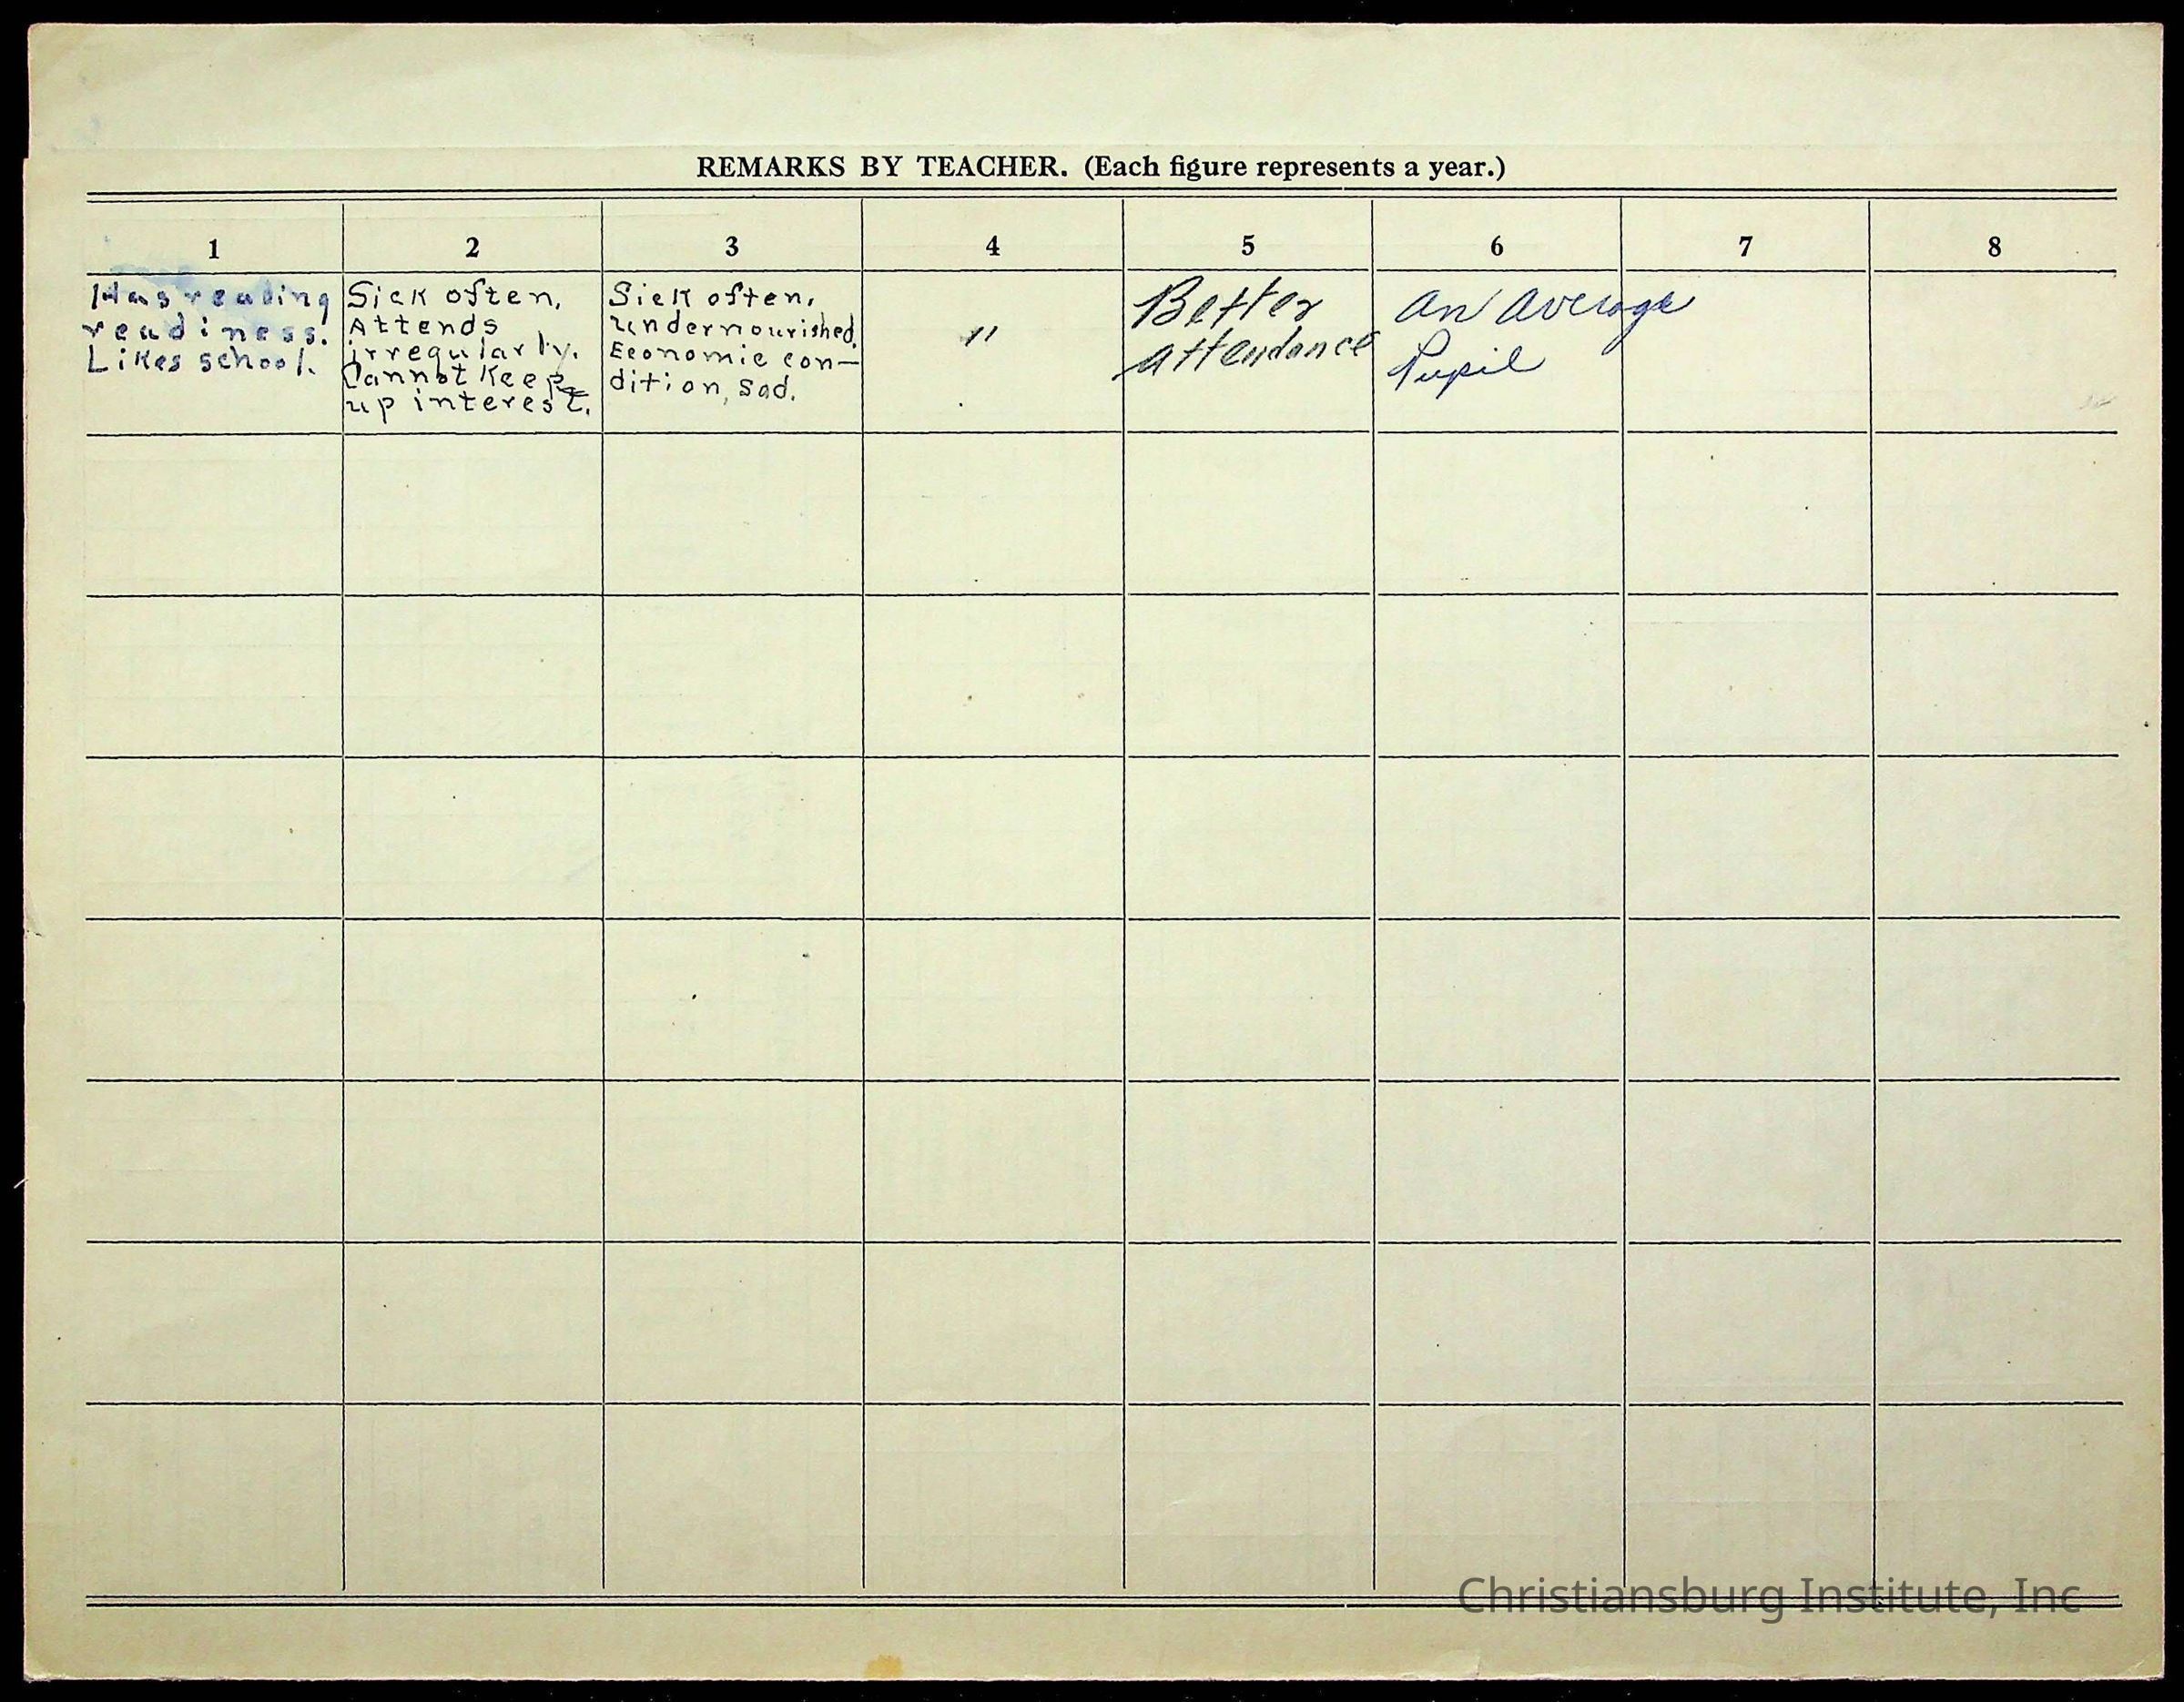 REMARKS BY TEACHER. (Each figure represents a year.)
1 2 3 4 5 6 7 8
Has reading
readiness.
Likes school.
Sick often,
Attends
irregularly.
Cannot keep
up interest.
Sick often,
undernourished.
Economic con-
dition, sad.
"
Better
attendance
An average
Pupil
Christiansburg Institute, Inc